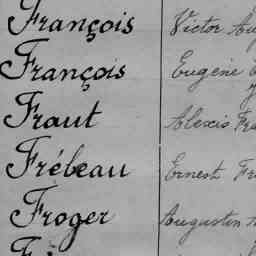 François Victor
François Eugène
Fraut Alexis
Frébeau Ernest
Froger Augustin